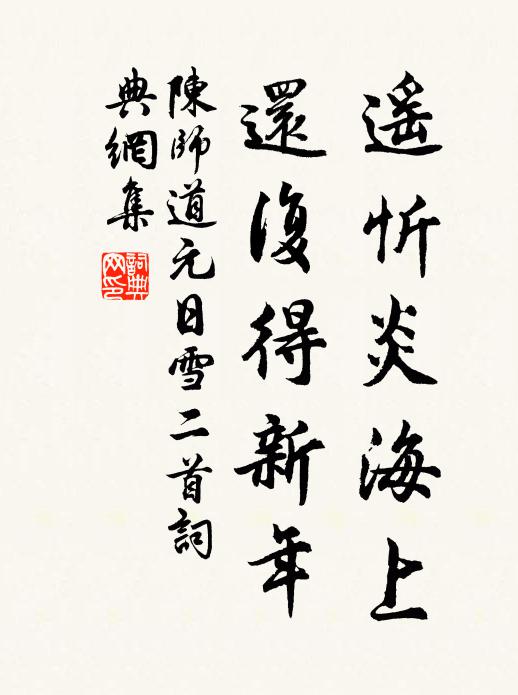 遥忻炎海上
還復得新年
陳師道元日雪二首詞
典網集
詞典網印